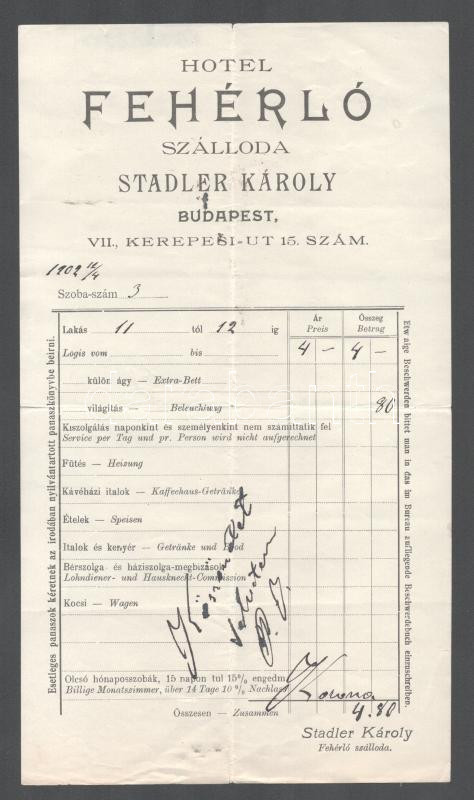 HOTEL
FEHÉRLÓ
SZÁLLODA
STADLER KÁROLY
BUDAPEST,
VII., KEREPESI-UT 15. SZÁM.
1902 12/4
Szoba-szám 3
Ár Összeg
Preis Betrag
Lakás 11 tól 12 ig
Logis vom bis 4 – 4 –
külön ágy — Extra-Bett
világítás — Beleuchtung 80
Kiszolgálás naponkint és személyenkint nem számíttatik fel
Service per Tag und pr. Person wird nicht aufgerechnet
Fütés — Heizung
Kávéházi italok — Kaffeehaus-Getränke
Ételek — Speisen
Italok és kenyér — Getränke und Brod
Bérszolga és háziszolga-megbizások
Lohndiener- und Hausknecht-Commission
Kocsi — Wagen
Köszönettel
Olcsó hónaposszobák, 15 napon tul 15% engedm.
Billige Monatszimmer, über 14 Tage 10 % Nachlass
Korona
Összesen — Zusammen 4.80
Stadler Károly
Fehérló szálloda.
Esetleges panaszok kéretnek az irodában nyilvántartott panaszkönyvbe beirni.
Etwaige Beschwerden bittet man in das im Bureau aufliegende Beschwerdebuch einzuschreiben.